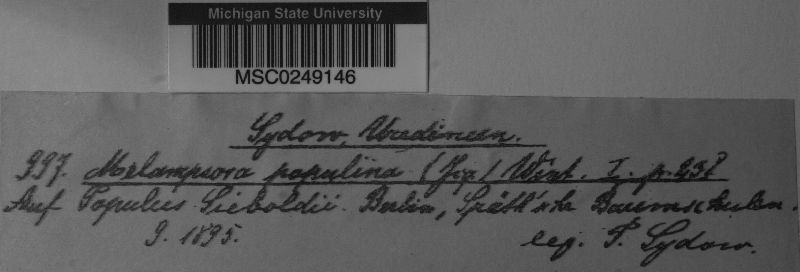 Michigan State University
MSC0249146
Sydow, Uredineen.
997. Melampsora populina (Jcq.) Wint. I. p. 238
Auf Populus Sieboldii. Berlin, Späth'sche Baumschulen.
9. 1895. leg. P. Sydow.